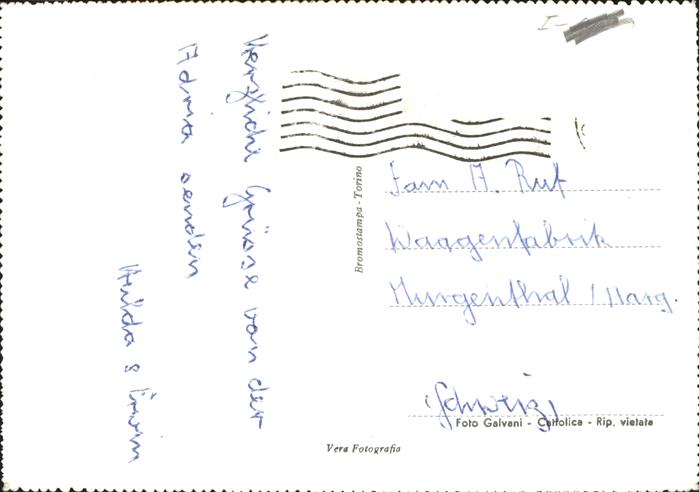 Herzliche Grüsse von der
Adria senden
Hulda & Erwin
Bromostampa - Torino
Fam A. Ruf
Waagenfabrik
Murgenthal / Aarg.
(Schweiz)
Foto Galvani - Cattolica - Rip. vietata
Vera Fotografia